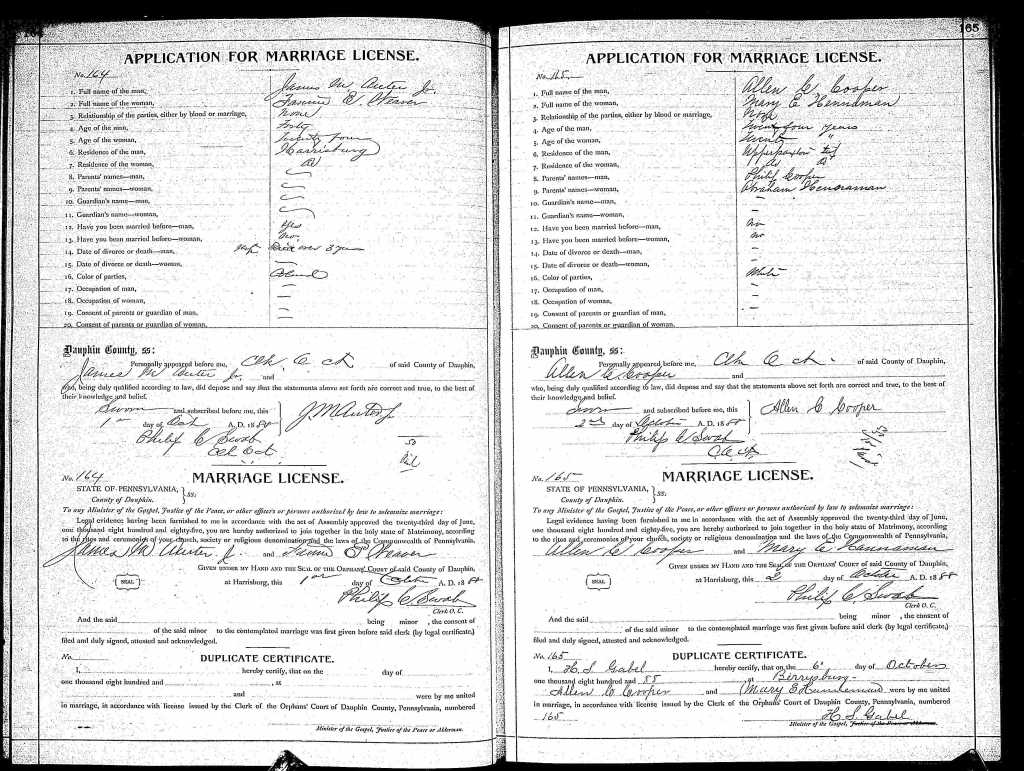 APPLICATION FOR MARRIAGE LICENSE.
No. 164
1. Full name of the man, James M Auter Jr.
2. Full name of the woman, Fannie E. Weaver
3. Relationship of the parties, either by blood or marriage, None
4. Age of the man, Forty
5. Age of the woman, Twenty four
6. Residence of the man, Harrisburg
7. Residence of the woman, do
8. Parents' names—man,
9. Parents' names—woman,
10. Guardian's name—man,
11. Guardian's name—woman,
12. Have you been married before—man, Yes
13. Have you been married before—woman, No.
14. Date of divorce or death—man, Died over 3 years
15. Date of divorce or death—woman, —
16. Color of parties, Colored
17. Occupation of man, —
18. Occupation of woman, —
19. Consent of parents or guardian of man, —
20. Consent of parents or guardian of woman,
Dauphin County, ss:
Personally appeared before me, Clk O. Ct. of said County of Dauphin,
James M Auter Jr. and
who, being duly qualified according to law, did depose and say that the statements above set forth are correct and true, to the best of
their knowledge and belief.
Sworn and subscribed before me, this
1st day of Oct A. D. 1888
J. M Auter Jr
Philip C Swab
Clk O. Ct.
50
Pd.
No. 164
MARRIAGE LICENSE.
STATE OF PENNSYLVANIA,
County of Dauphin. } ss:
To any Minister of the Gospel, Justice of the Peace, or other officers or persons authorized by law to solemnize marriage:
Legal evidence having been furnished to me in accordance with the act of Assembly approved the twenty-third day of June,
one thousand eight hundred and eighty-five, you are hereby authorized to join together in the holy state of Matrimony, according
to the rites and ceremonies of your church, society or religious denomination and the laws of the Commonwealth of Pennsylvania,
James M Auter Jr. and Fannie E Weaver
GIVEN UNDER MY HAND AND THE SEAL OF THE ORPHANS' COURT of said County of Dauphin,
SEAL
at Harrisburg, this 1st day of October A. D. 1888
Philip C. Swab
Clerk O. C.
And the said being minor , the consent of
of the said minor to the contemplated marriage was first given before said clerk (by legal certificate,)
filed and duly signed, attested and acknowledged.
No.
DUPLICATE CERTIFICATE.
I, hereby certify, that on the day of
one thousand eight hundred and , at
and were by me united
in marriage, in accordance with license issued by the Clerk of the Orphans' Court of Dauphin County, Pennsylvania, numbered
Minister of the Gospel, Justice of the Peace or Alderman.
165
APPLICATION FOR MARRIAGE LICENSE.
No. 165
1. Full name of the man, Allen C. Cooper
2. Full name of the woman, Mary E Henneman
3. Relationship of the parties, either by blood or marriage, None
4. Age of the man, Twenty four years
5. Age of the woman, Twenty
6. Residence of the man, Upperpaxton tp
7. Residence of the woman, do do
8. Parents' names—man, Philip Cooper
9. Parents' names—woman, Abraham Henneman
10. Guardian's name—man, —
11. Guardian's name—woman, —
12. Have you been married before—man, No
13. Have you been married before—woman, no
14. Date of divorce or death—man, —
15. Date of divorce or death—woman, —
16. Color of parties, White
17. Occupation of man, —
18. Occupation of woman, —
19. Consent of parents or guardian of man, —
20. Consent of parents or guardian of woman,
Dauphin County, ss:
Personally appeared before me, Clk O Ct. of said County of Dauphin,
Allen C. Cooper and
who, being duly qualified according to law, did depose and say that the statements above set forth are correct and true, to the best of
their knowledge and belief.
Sworn and subscribed before me, this
2nd day of October A. D. 1888
Allen C Cooper
Philip C Swab
Clk O. Ct.
No. 165
MARRIAGE LICENSE.
STATE OF PENNSYLVANIA,
County of Dauphin. } ss:
To any Minister of the Gospel, Justice of the Peace, or other officers or persons authorized by law to solemnize marriage:
Legal evidence having been furnished to me in accordance with the act of Assembly approved the twenty-third day of June,
one thousand eight hundred and eighty-five, you are hereby authorized to join together in the holy state of Matrimony, according
to the rites and ceremonies of your church, society or religious denomination and the laws of the Commonwealth of Pennsylvania,
Allen C Cooper and Mary E Hanneman
GIVEN UNDER MY HAND AND THE SEAL OF THE ORPHANS' COURT of said County of Dauphin,
SEAL
at Harrisburg, this 2 day of October A. D. 1888
Philip C. Swab
Clerk O. C.
And the said being minor , the consent of
of the said minor to the contemplated marriage was first given before said clerk (by legal certificate,)
filed and duly signed, attested and acknowledged.
No. 165
DUPLICATE CERTIFICATE.
I, H. S. Gabel hereby certify, that on the 6" day of October
one thousand eight hundred and 88 , at Berrysburg
Allen C Cooper and Mary E Hunneman were by me united
in marriage, in accordance with license issued by the Clerk of the Orphans' Court of Dauphin County, Pennsylvania, numbered
165
H. S. Gabel
Minister of the Gospel, Justice of the Peace or Alderman.